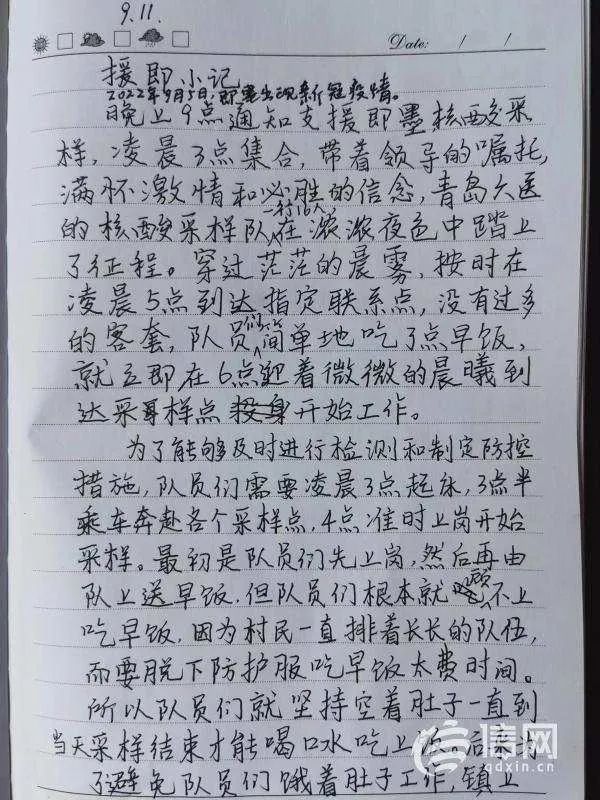 9.11.
Date: / /
援即小记
2022年9月5日，即墨出现新冠疫情。
晚上9点通知支援即墨核酸采
样，凌晨3点集合，带着领导的嘱托，
满怀激情和必胜的信念，青岛六医
的核酸采样队一行16人在浓浓夜色中踏上
了征程。穿过茫茫的晨雾，按时在
凌晨5点到达指定联系点，没有过多
的客套，队员们简单地吃了点早饭，
就立即在6点迎着微微的晨曦到
达采样点开始工作。
为了能够及时进行检测和制定防控
措施，队员们需要凌晨3点起床，3点半
乘车奔赴各个采样点，4点准时上岗开始
采样。最初是队员们先上岗，然后再由
队上送早饭，但队员们根本就顾不上
吃早饭，因为村民一直排着长长的队伍，
而要脱下防护服吃早饭太费时间。
所以队员们就坚持空着肚子一直到
当天采样结束才能喝口水吃上饭。后来为
了避免队员们饿着肚子工作，镇上
信网
qdxin.cn